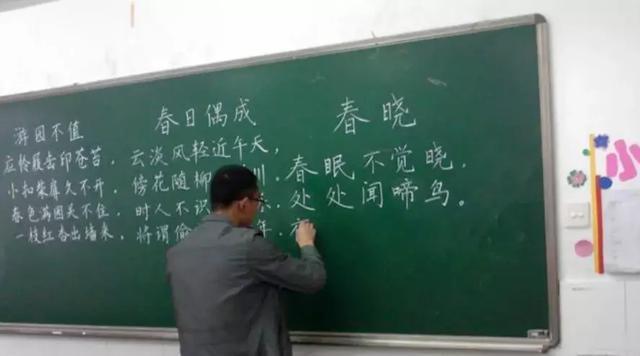 游园不值
应怜屐齿印苍苔，
小扣柴扉久不开，
春色满园关不住，
一枝红杏出墙来，
春日偶成
云淡风轻近午天，
傍花随柳 川，
时人不识
将谓偷 年，
春晓
春眠不觉晓，
处处闻啼鸟。
小